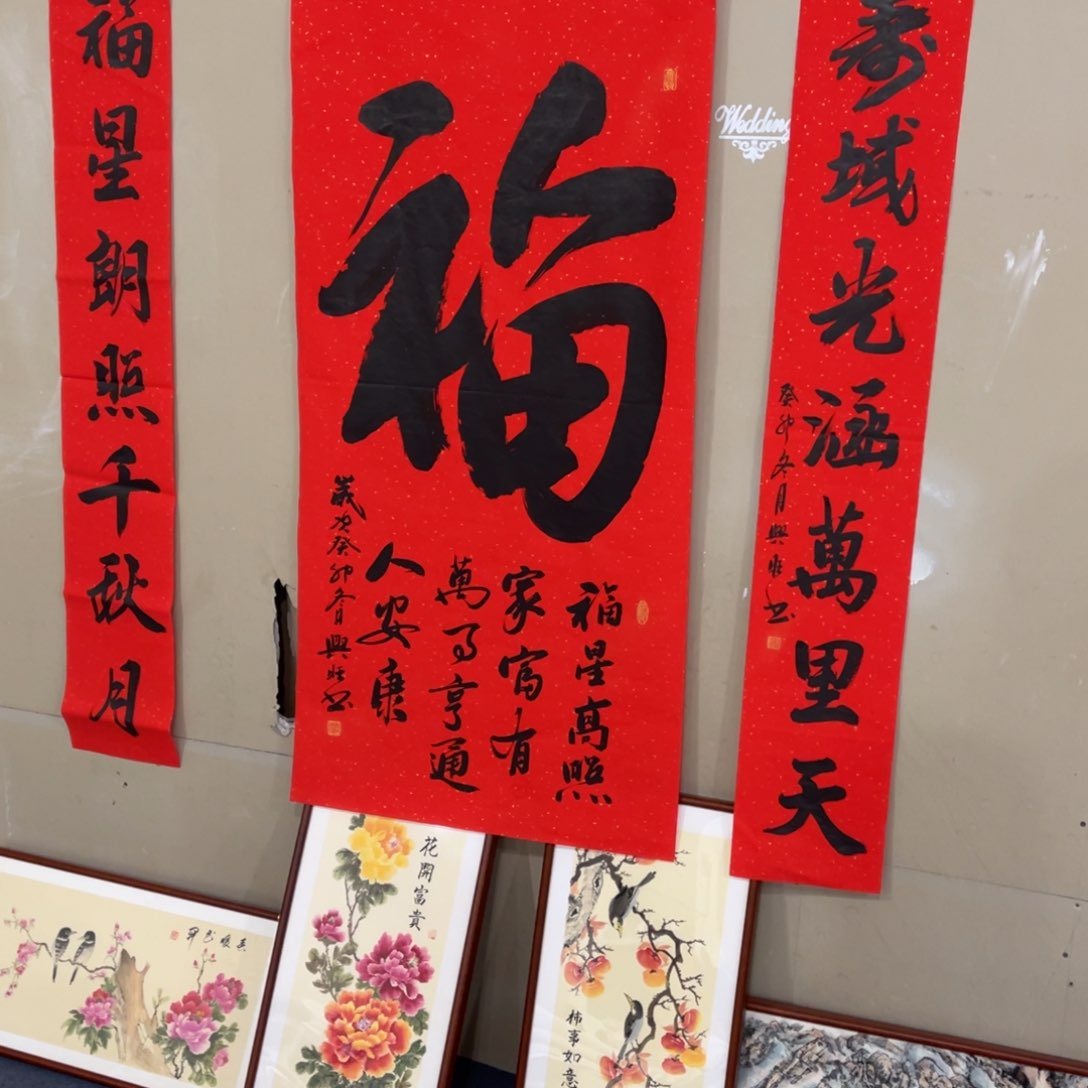 寿域光涵萬里天
癸卯冬月興旺书
Wedding
福
福星高照
家富有
萬事亨通
人安康
歲次癸卯冬月興旺书
福星朗照千秋月
花開富貴
柿事如意